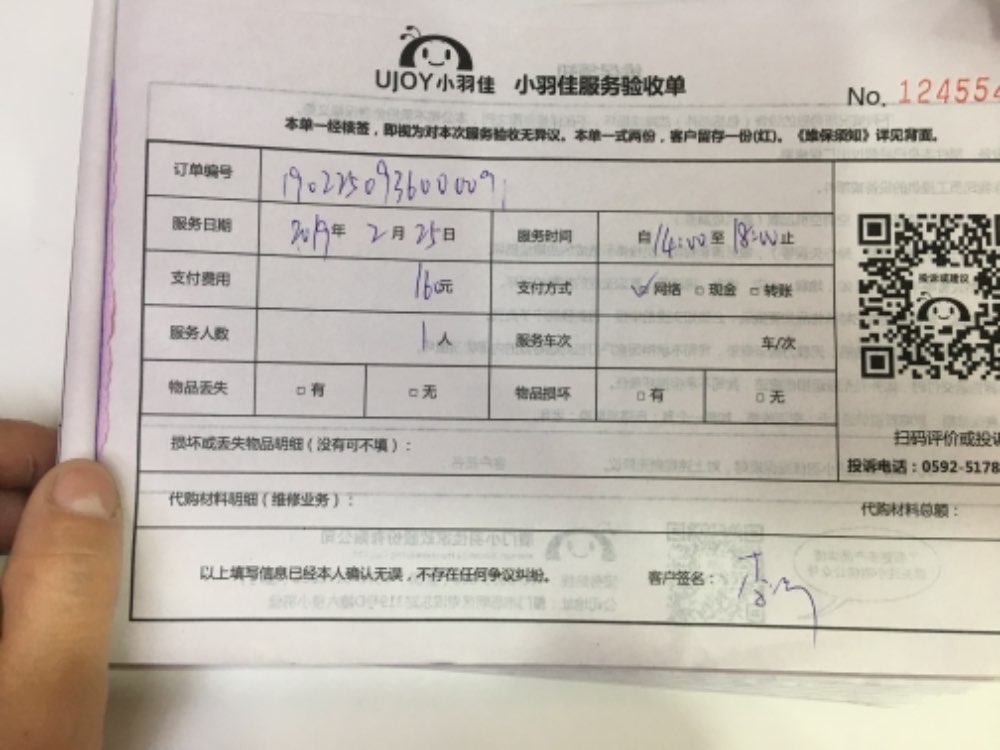 UJOY小羽佳 小羽佳服务验收单
No. 124554
本单一经接签，即视为对本次服务验收无异议。本单一式两份，客户留存一份(红)。《维保须知》详见背面。
订单编号 190225093600009
服务日期 2019年 2月 25日 服务时间 自14:00至18:00止
支付费用 160元 支付方式 ☑网络 □现金 □转账
服务人数 1人 服务车次 车/次
物品丢失 □有 □无 物品损坏 □有 □无
投诉或建议
扫码评价或投诉
投诉电话：0592-5178
损坏或丢失物品明细（没有可不填）：
代购材料明细（维修业务）： 代购材料总额：
以上填写信息已经本人确认无误，不存在任何争议纠纷。 客户签名：